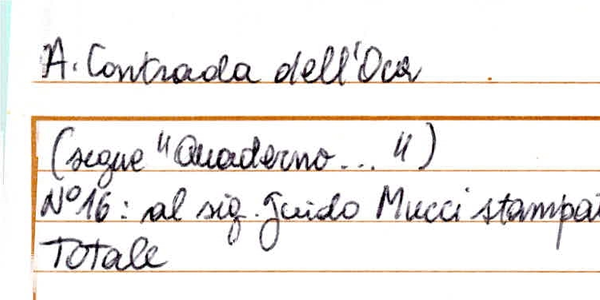 A. Contrada dell'Oca
(segue "Quaderno... ")
N° 16: al sig. Guido Mucci stampai
Totale